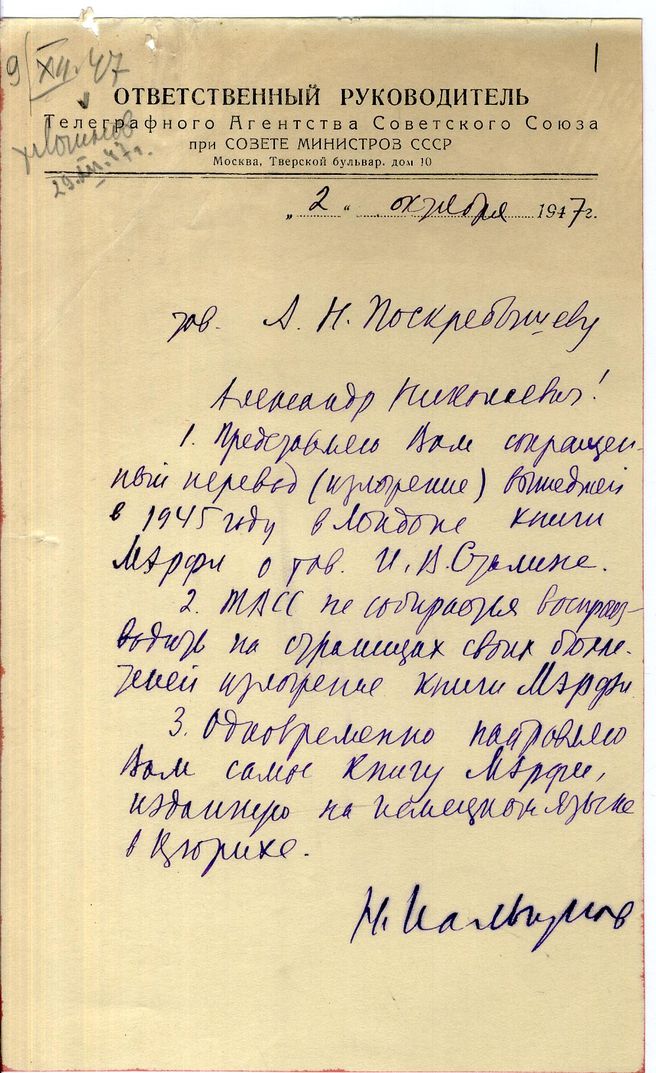 1
9/XII.47
29.XII.47г.
ОТВЕТСТВЕННЫЙ РУКОВОДИТЕЛЬ
Телеграфного Агентства Советского Союза
при СОВЕТЕ МИНИСТРОВ СССР
Москва, Тверской бульвар, дом 10
„2“ октября 1947г.
тов. А. Н. Поскребышеву
Александр Николаевич!
1. Представляю Вам сокращен-
ный перевод (изложение) вышедшей
в 1945 году в Лондоне книги
Мэрфи о тов. И. В. Сталине.
2. ТАСС не собирается воспроиз-
водить на страницах своих бюлле-
теней изложение книги Мэрфи
3. Одновременно направляю
Вам самое книгу Мэрфи,
изданную на немецком языке
в Цюрихе.
Н. Пальгунов